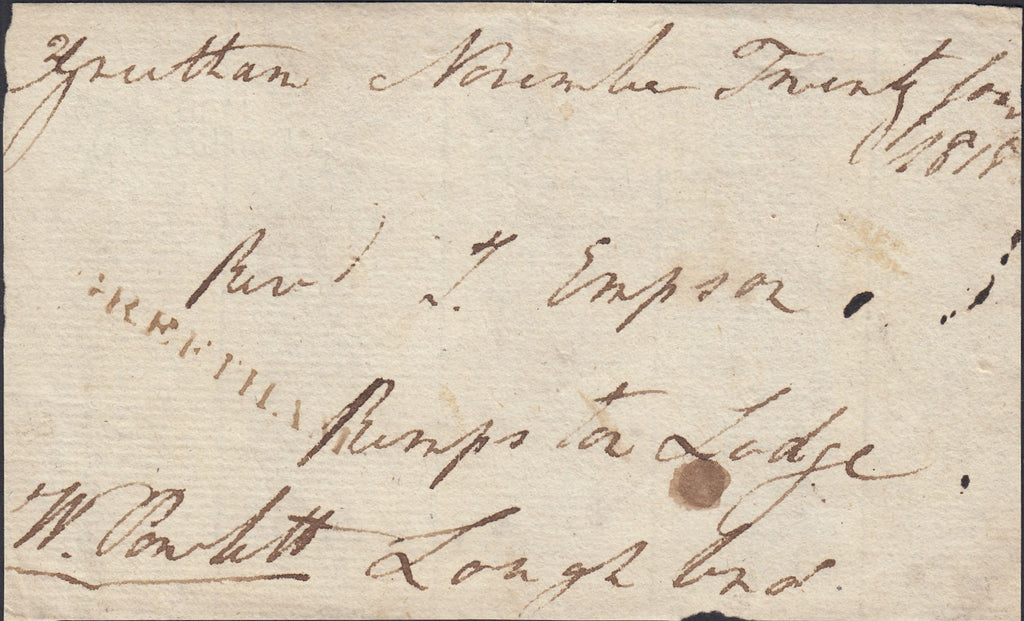 Greetham November Twenty four
1818
Revd T. Empson.
GREETHAM
Rempston Lodge.
W. Powlett Loughbro'.